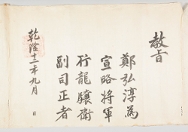 敎旨
鄭弘淳爲
宣略將軍
行龍驤衛
副司正者
乾隆十二年九月 日